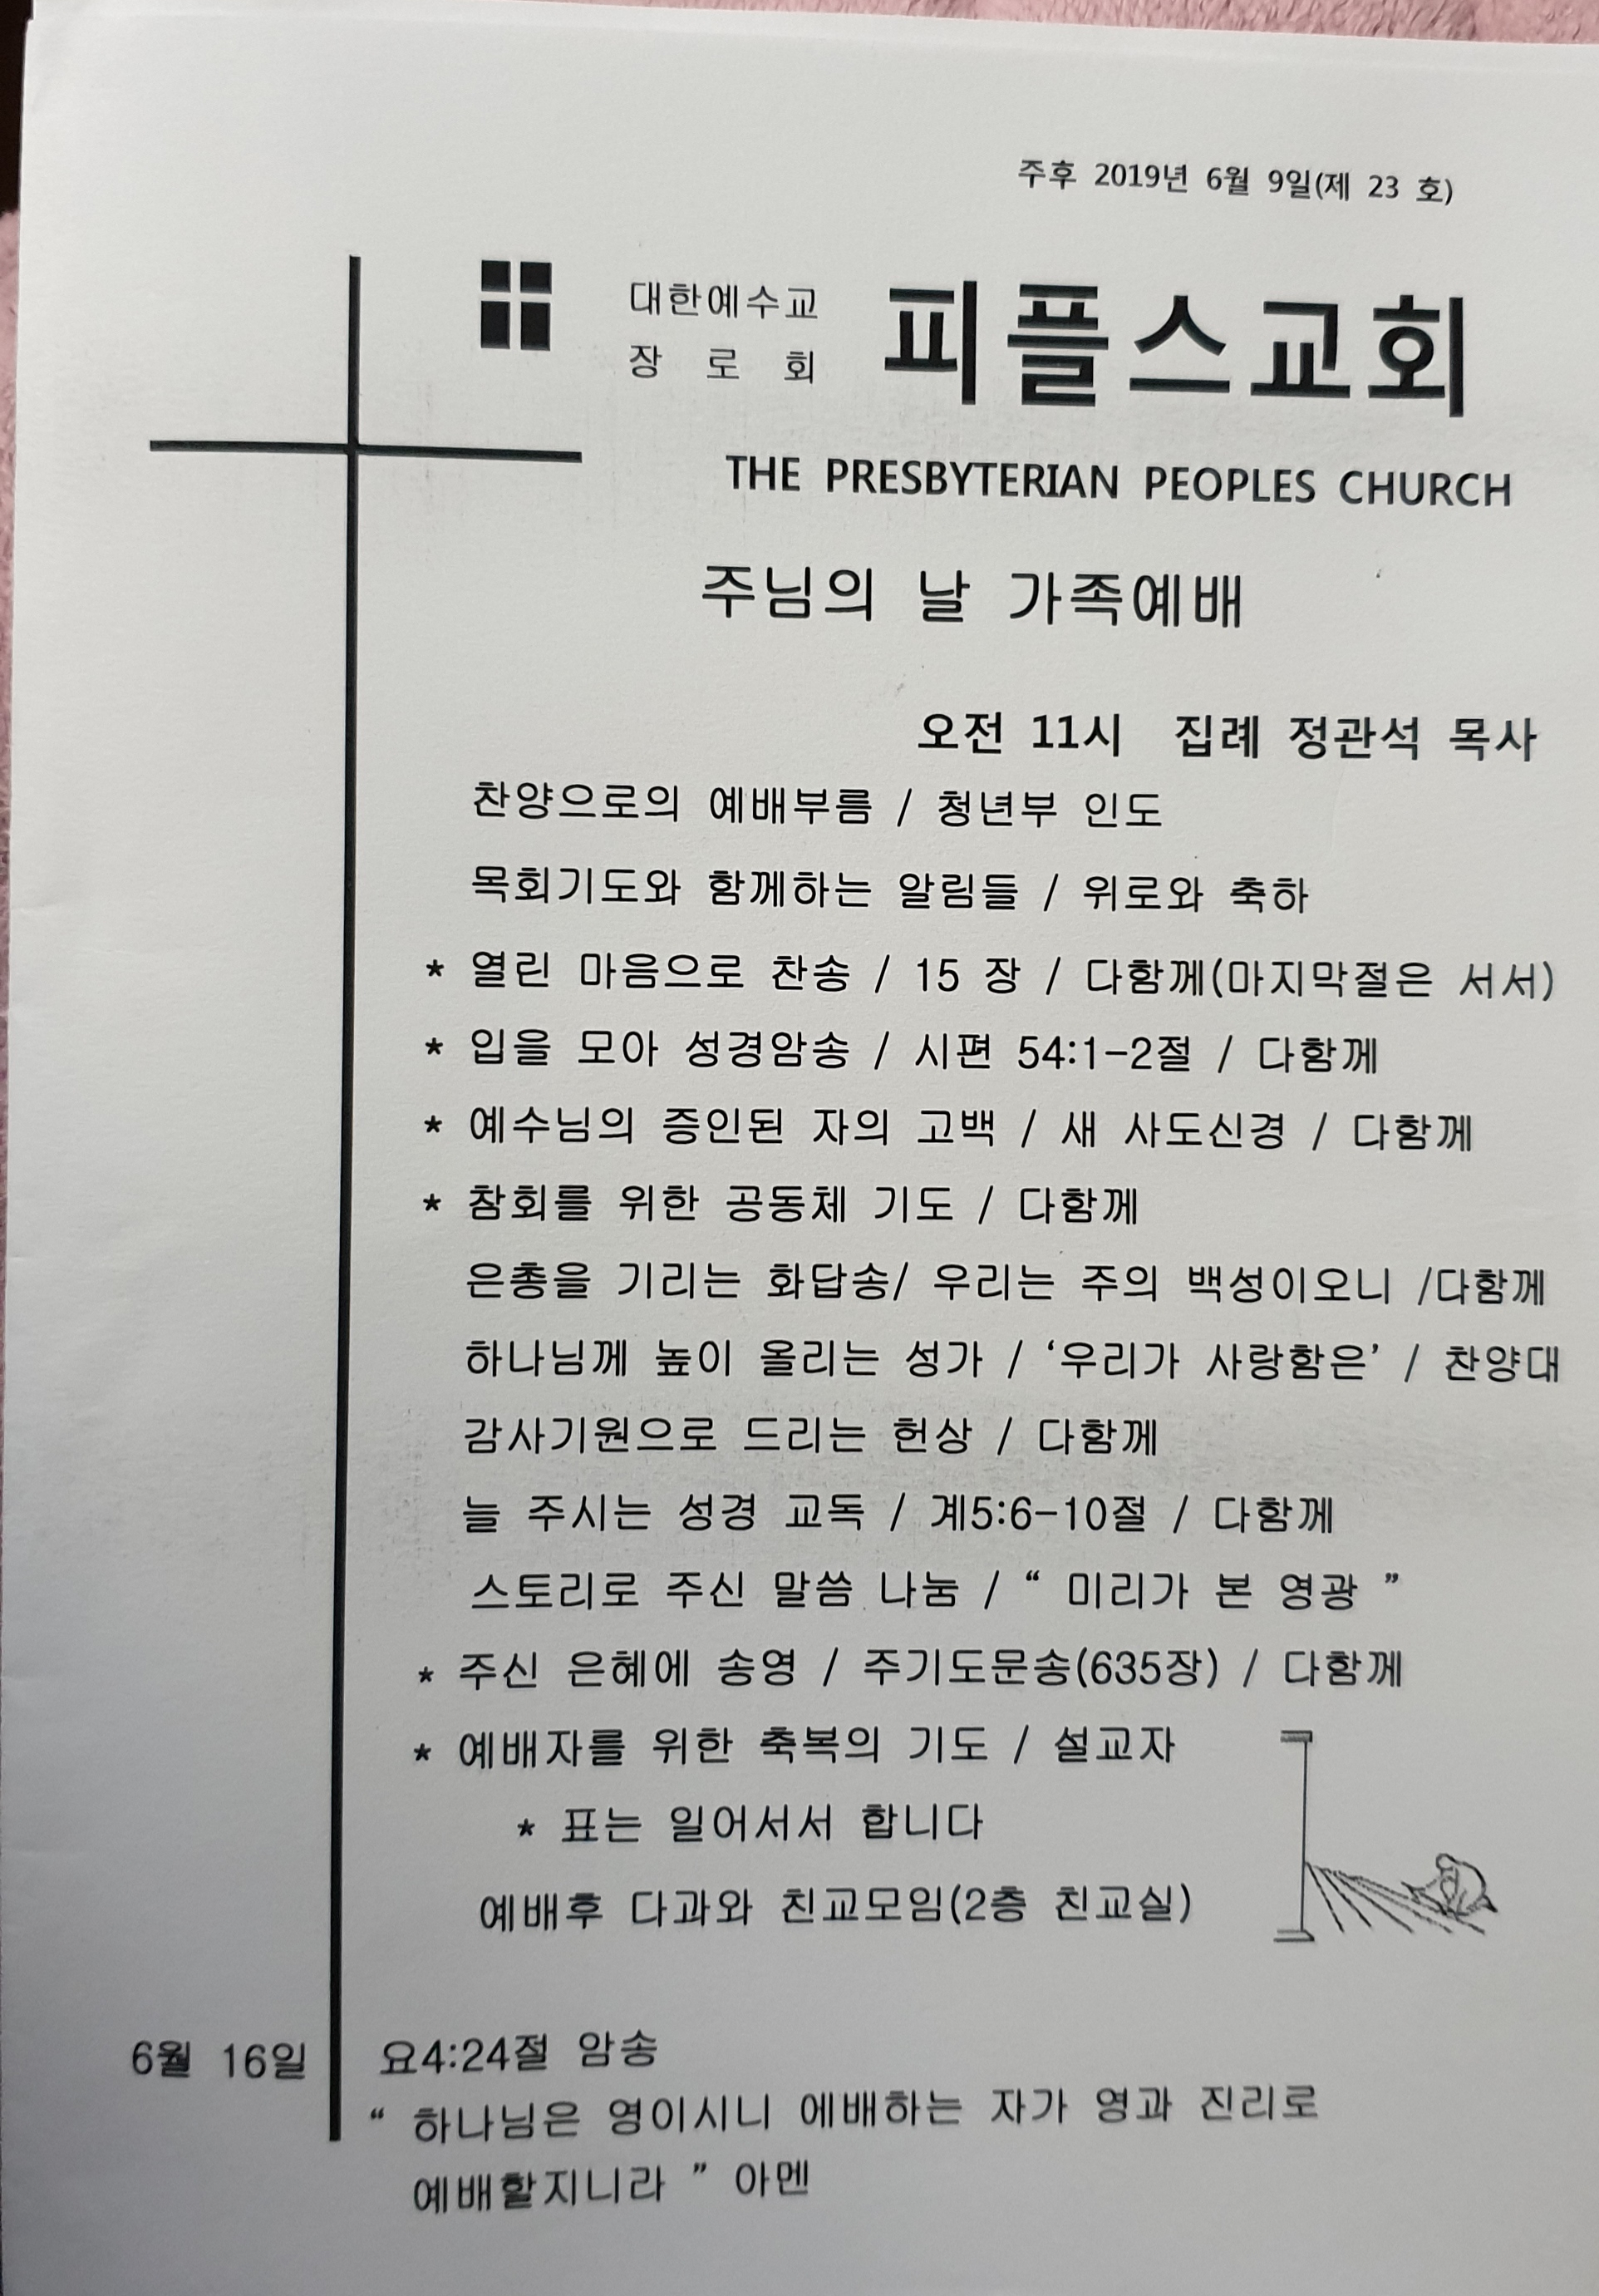 주후 2019년 6월 9일(제 23 호)
대한예수교
장 로 회
피플스교회
THE PRESBYTERIAN PEOPLES CHURCH
주님의 날 가족예배
오전 11시 집례 정관석 목사
찬양으로의 예배부름 / 청년부 인도
목회기도와 함께하는 알림들 / 위로와 축하
* 열린 마음으로 찬송 / 15 장 / 다함께(마지막절은 서서)
* 입을 모아 성경암송 / 시편 54:1-2절 / 다함께
* 예수님의 증인된 자의 고백 / 새 사도신경 / 다함께
* 참회를 위한 공동체 기도 / 다함께
은총을 기리는 화답송/ 우리는 주의 백성이오니 /다함께
하나님께 높이 올리는 성가 / ‘우리가 사랑함은’ / 찬양대
감사기원으로 드리는 헌상 / 다함께
늘 주시는 성경 교독 / 계5:6-10절 / 다함께
스토리로 주신 말씀 나눔 / “ 미리가 본 영광 ”
* 주신 은혜에 송영 / 주기도문송(635장) / 다함께
* 예배자를 위한 축복의 기도 / 설교자
* 표는 일어서서 합니다
예배후 다과와 친교모임(2층 친교실)
6월 16일 요4:24절 암송
“ 하나님은 영이시니 에배하는 자가 영과 진리로
예배할지니라 ” 아멘